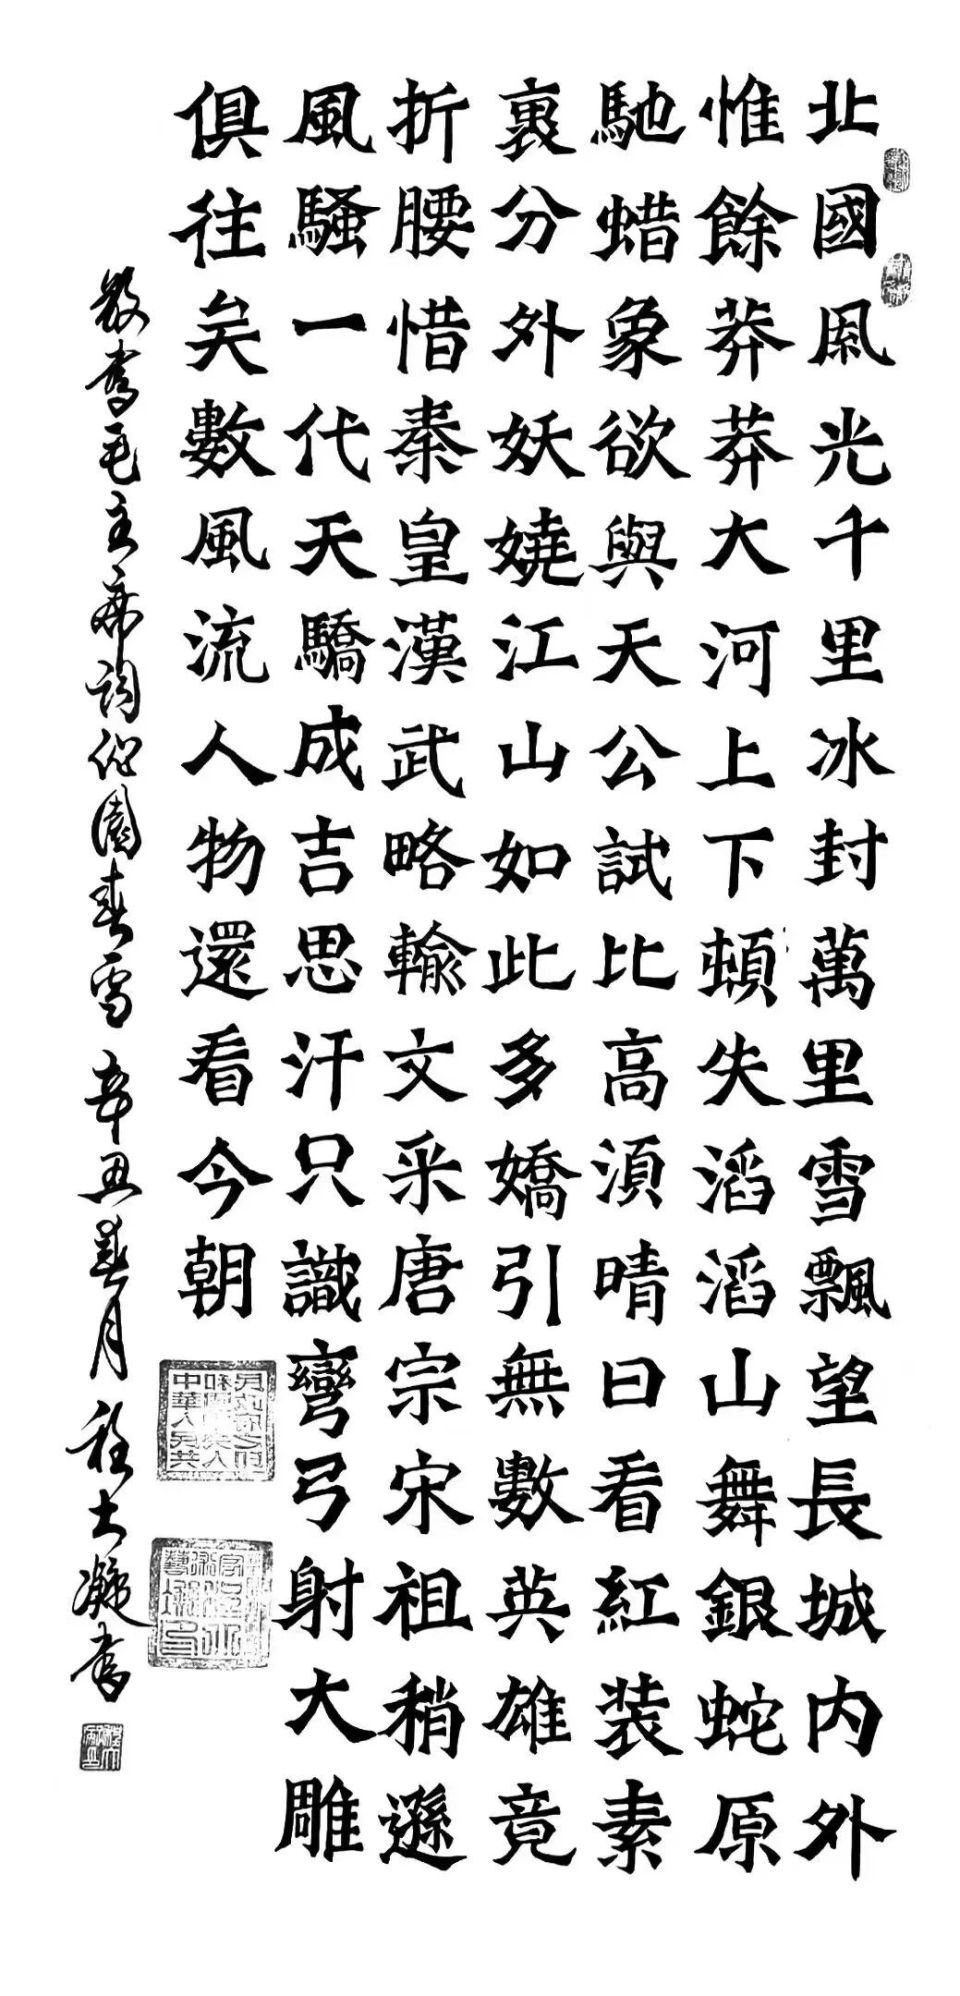 北國風光千里冰封萬里雪飄望長城内外
惟餘莽莽大河上下頓失滔滔山舞銀蛇原
馳蜡象欲與天公試比高湏晴日看紅装素
裹分外妖嬈江山如此多嬌引無數英雄竟
折腰惜秦皇漢武略輸文采唐宗宋祖稍遜
風騷一代天驕成吉思汗只識彎弓射大雕
俱往矣數風流人物還看今朝
敬書毛主席詞沁園春雪 辛丑春月 程大凝書